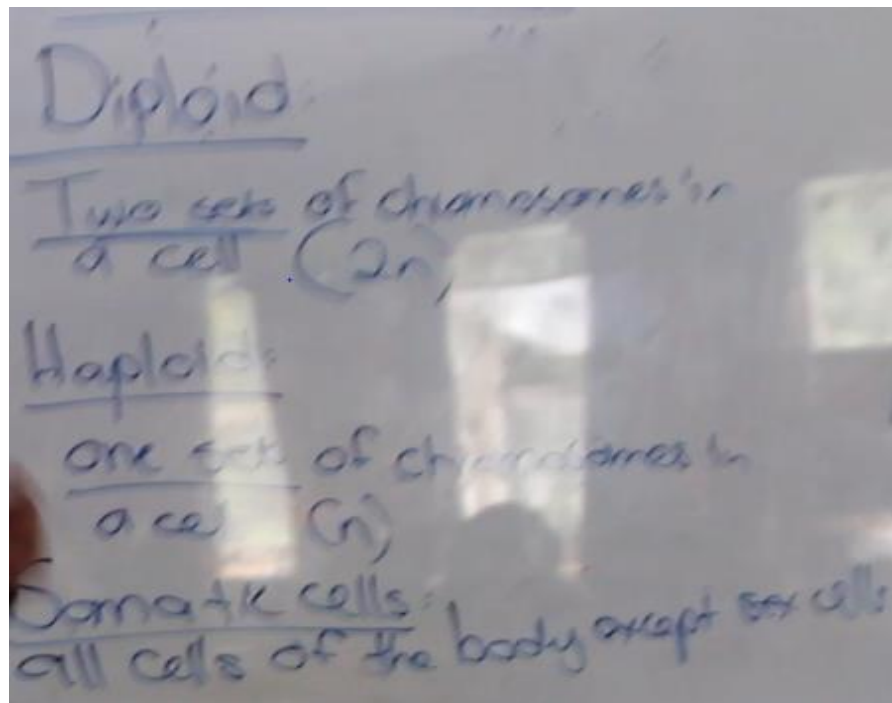 Diploid:
Two sets of chromosomes in
a cell (2n)
Haploid:
one sets of chromosomes in
a cell (n)
Somatic cells:
all cells of the body except sex cells